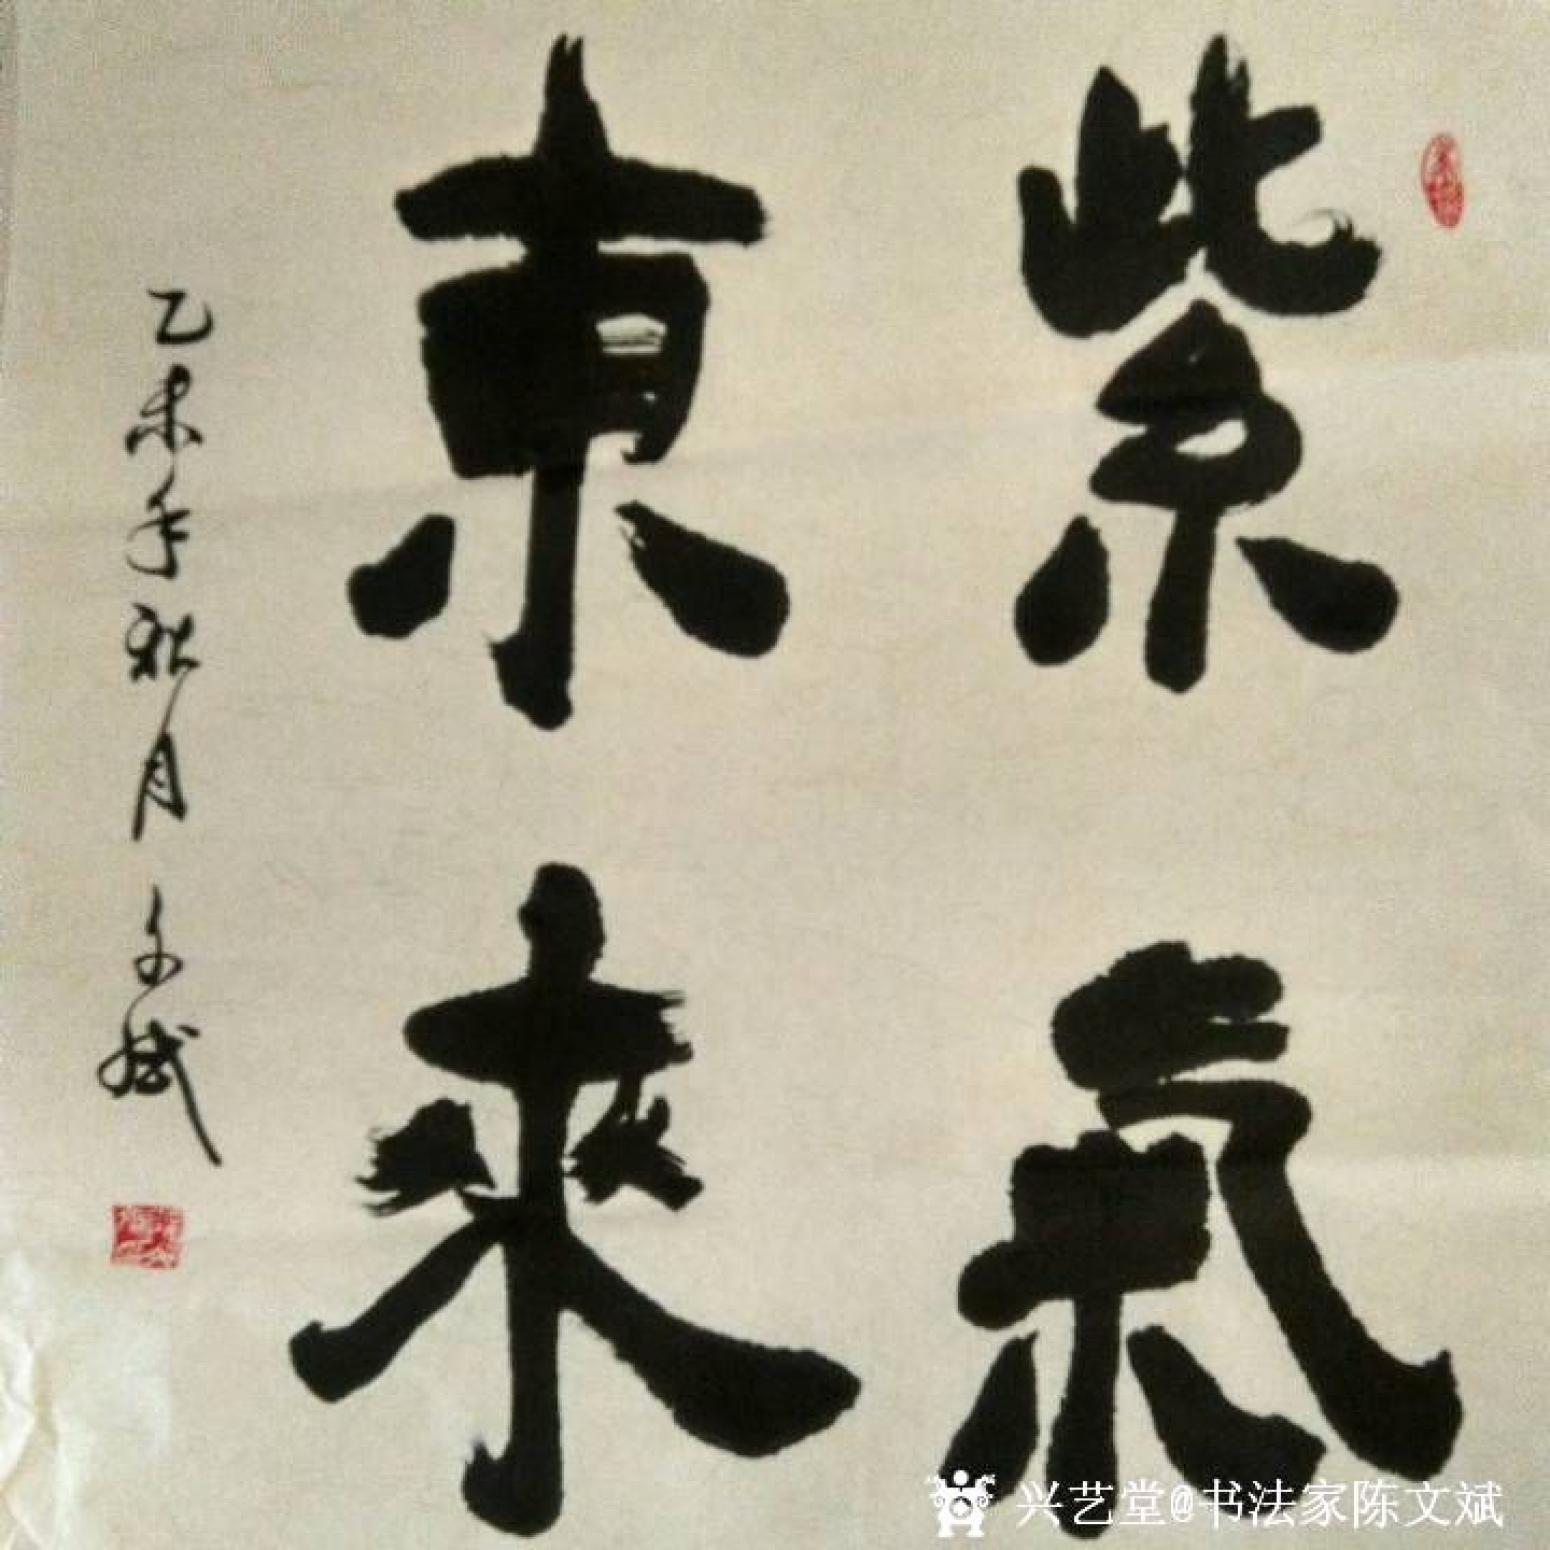 紫氣
東來
乙未年秋月文斌
兴艺堂@书法家陈文斌